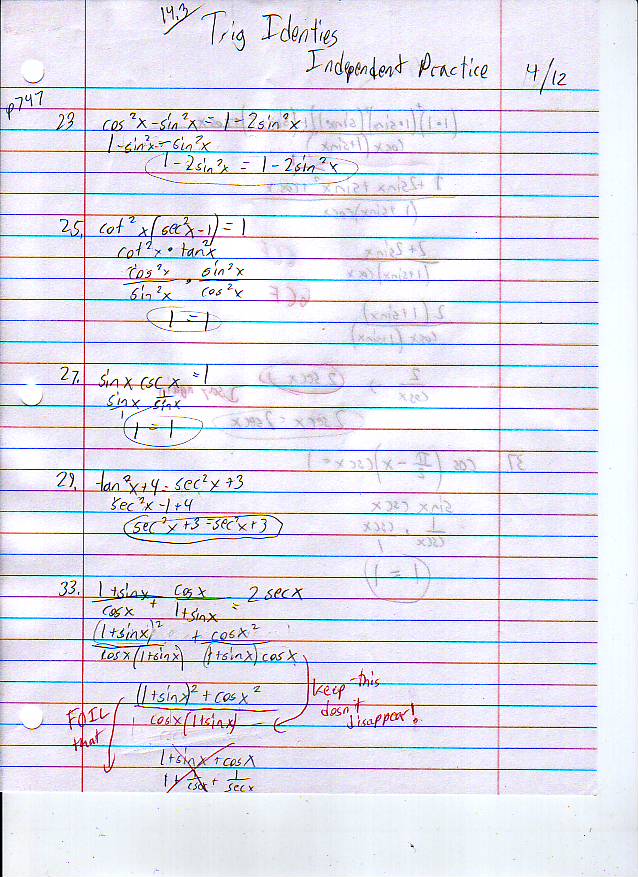 14.3
Trig Identies
Independent Practice 4/12
p747
23 cos²x - sin²x = 1 - 2sin²x
1 - sin²x - sin²x
1 - 2sin²x = 1 - 2sin²x
25. cot²x(sec²x-1) = 1
cot²x • tan²x
cos²x/sin²x • sin²x/cos²x
1 = 1
27. sin x csc x = 1
sin x/1 1/sin x
1 = 1
29. tan²x+4 = sec²x+3
sec²x-1+4
sec²x+3 = sec²x+3
33. 1+sinx/cosx + cosx/1+sinx = 2 secx
(1+sinx)²/cosx(1+sinx) + cosx²/(1+sinx)cosx
(1+sinx)² + cosx²/cosx(1+sinx)
keep - this
dosn't
disappear!
FOIL
that
1+sinx+cosx
1 + 1/cscx + 1/secx